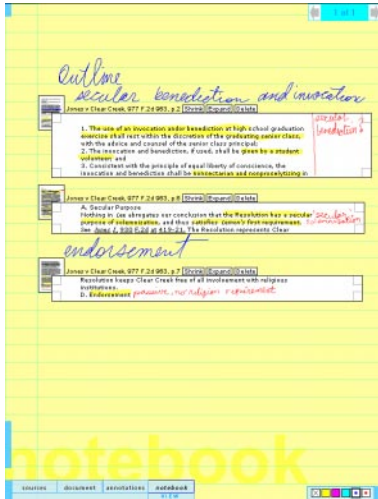 1 of 1
Outline
secular benediction and invocation
Jones v Clear Creek, 977 F.2d 963, p.2 Shrink Expand Delete
1. The use of an invocation and/or benediction at high school graduation
exercise shall rest within the discretion of the graduating senior class,
with the advice and counsel of the senior class principal;
2. The invocation and benediction, if used, shall be given by a student
volunteer; and
3. Consistent with the principle of equal liberty of conscience, the
invocation and benediction shall be nonsectarian and nonproselytizing in
secular
benediction
Jones v Clear Creek, 977 F.2d 963, p.8 Shrink Expand Delete
A. Secular Purpose
Nothing in Lee abrogates our conclusion that the Resolution has a secular
purpose of solemnization, and thus satisfies Lemon's first requirement.
See Jones I, 930 F.2d at 419-21. The Resolution represents Clear
secular
solemnization
endorsement
Jones v Clear Creek, 977 F.2d 963, p.7 Shrink Expand Delete
Resolution keeps Clear Creek free of all involvement with religious
institutions.
D. Endorsement
pressure, no religion requirement
notebook
sources document annotations notebook
VIEW